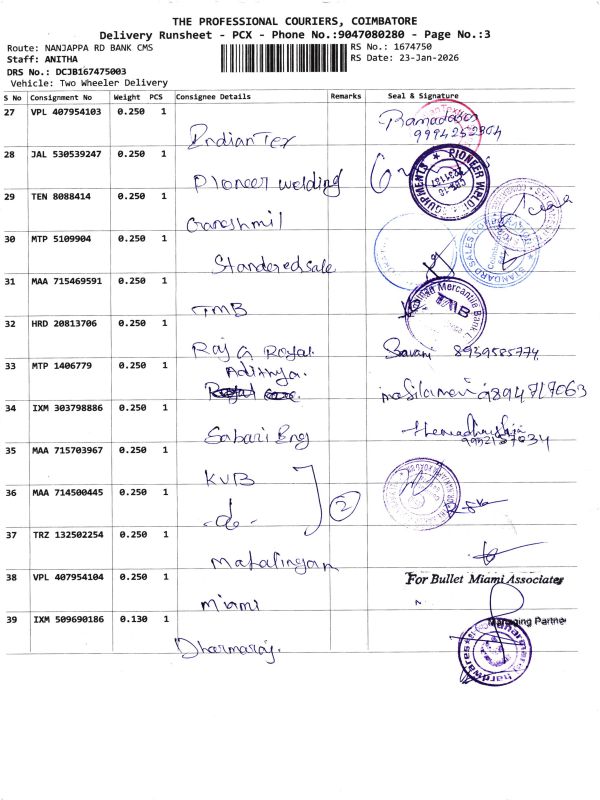 THE PROFESSIONAL COURIERS, COIMBATORE
Delivery Runsheet - PCX - Phone No.:9047080280 - Page No.:3
Route: NANJAPPA RD BANK CMS
RS No.: 1674750
Staff: ANITHA
RS Date: 23-Jan-2026
DRS No.: DCJB167475003
Vehicle: Two Wheeler Delivery
S No Consignment No Weight PCS Consignee Details Remarks Seal & Signature
27 VPL 407954103 0.250 1 Indian Tex Ramadass
9994252304
28 JAL 530539247 0.250 1 Pioneer welding
PIONEER WELDI
EQUIPMENTS
29 TEN 8088414 0.250 1 Ganeshmil
30 MTP 5109904 0.250 1 Standered sale
STANDARD SALES CO
31 MAA 715469591 0.250 1 TMB
Mercantile Bank
TMB
32 HRD 20813706 0.250 1 Raj G Royal. Saravani 8939585774
33 MTP 1406779 0.250 1 Adithya. masilamani 9894717063
34 IXM 303798886 0.250 1 Sabari Eng
35 MAA 715703967 0.250 1 KVB
36 MAA 714500445 0.250 1 -do- 2
37 TRZ 132502254 0.250 1 Mahalingam
38 VPL 407954104 0.250 1 Miami
For Bullet Miami Associates
Managing Partne
39 IXM 509690186 0.130 1 Dharmaraj.
Dharmaraj hardwares